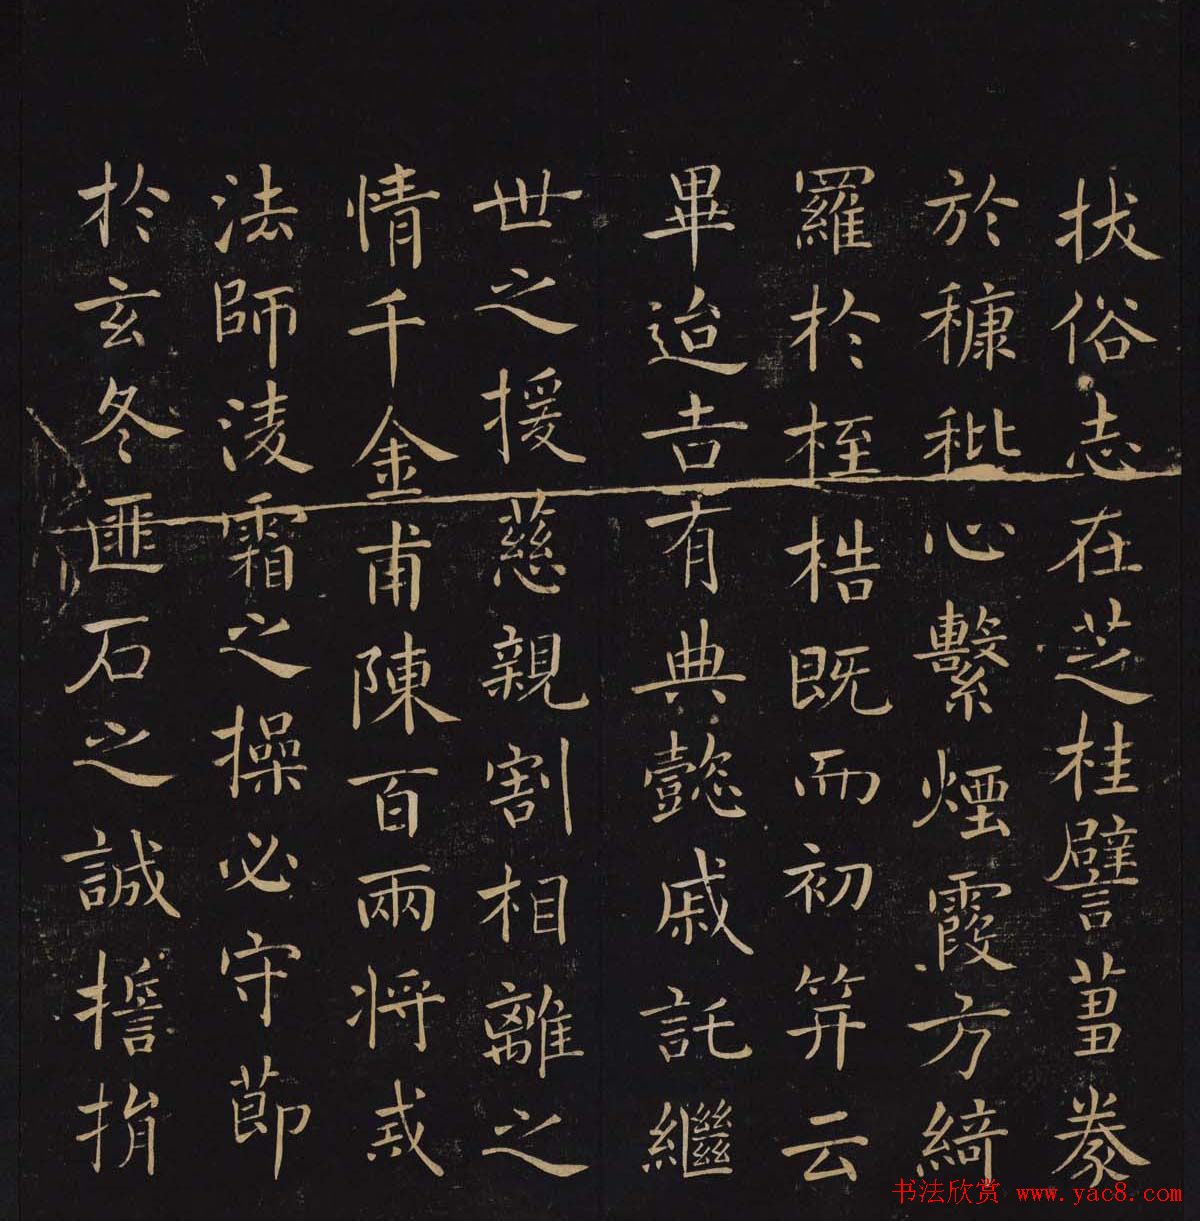 拔俗志在芝桂譬蒭豢
於穅秕心繫煙霞方綺
羅於桎梏既而初笄云
畢迨吉有典懿戚託繼
世之援慈親割相離之
情千金甫陳百兩将戒
法師淩霜之操必守莭
於玄冬匪石之誠誓捐
书法欣赏 www.yac8.com